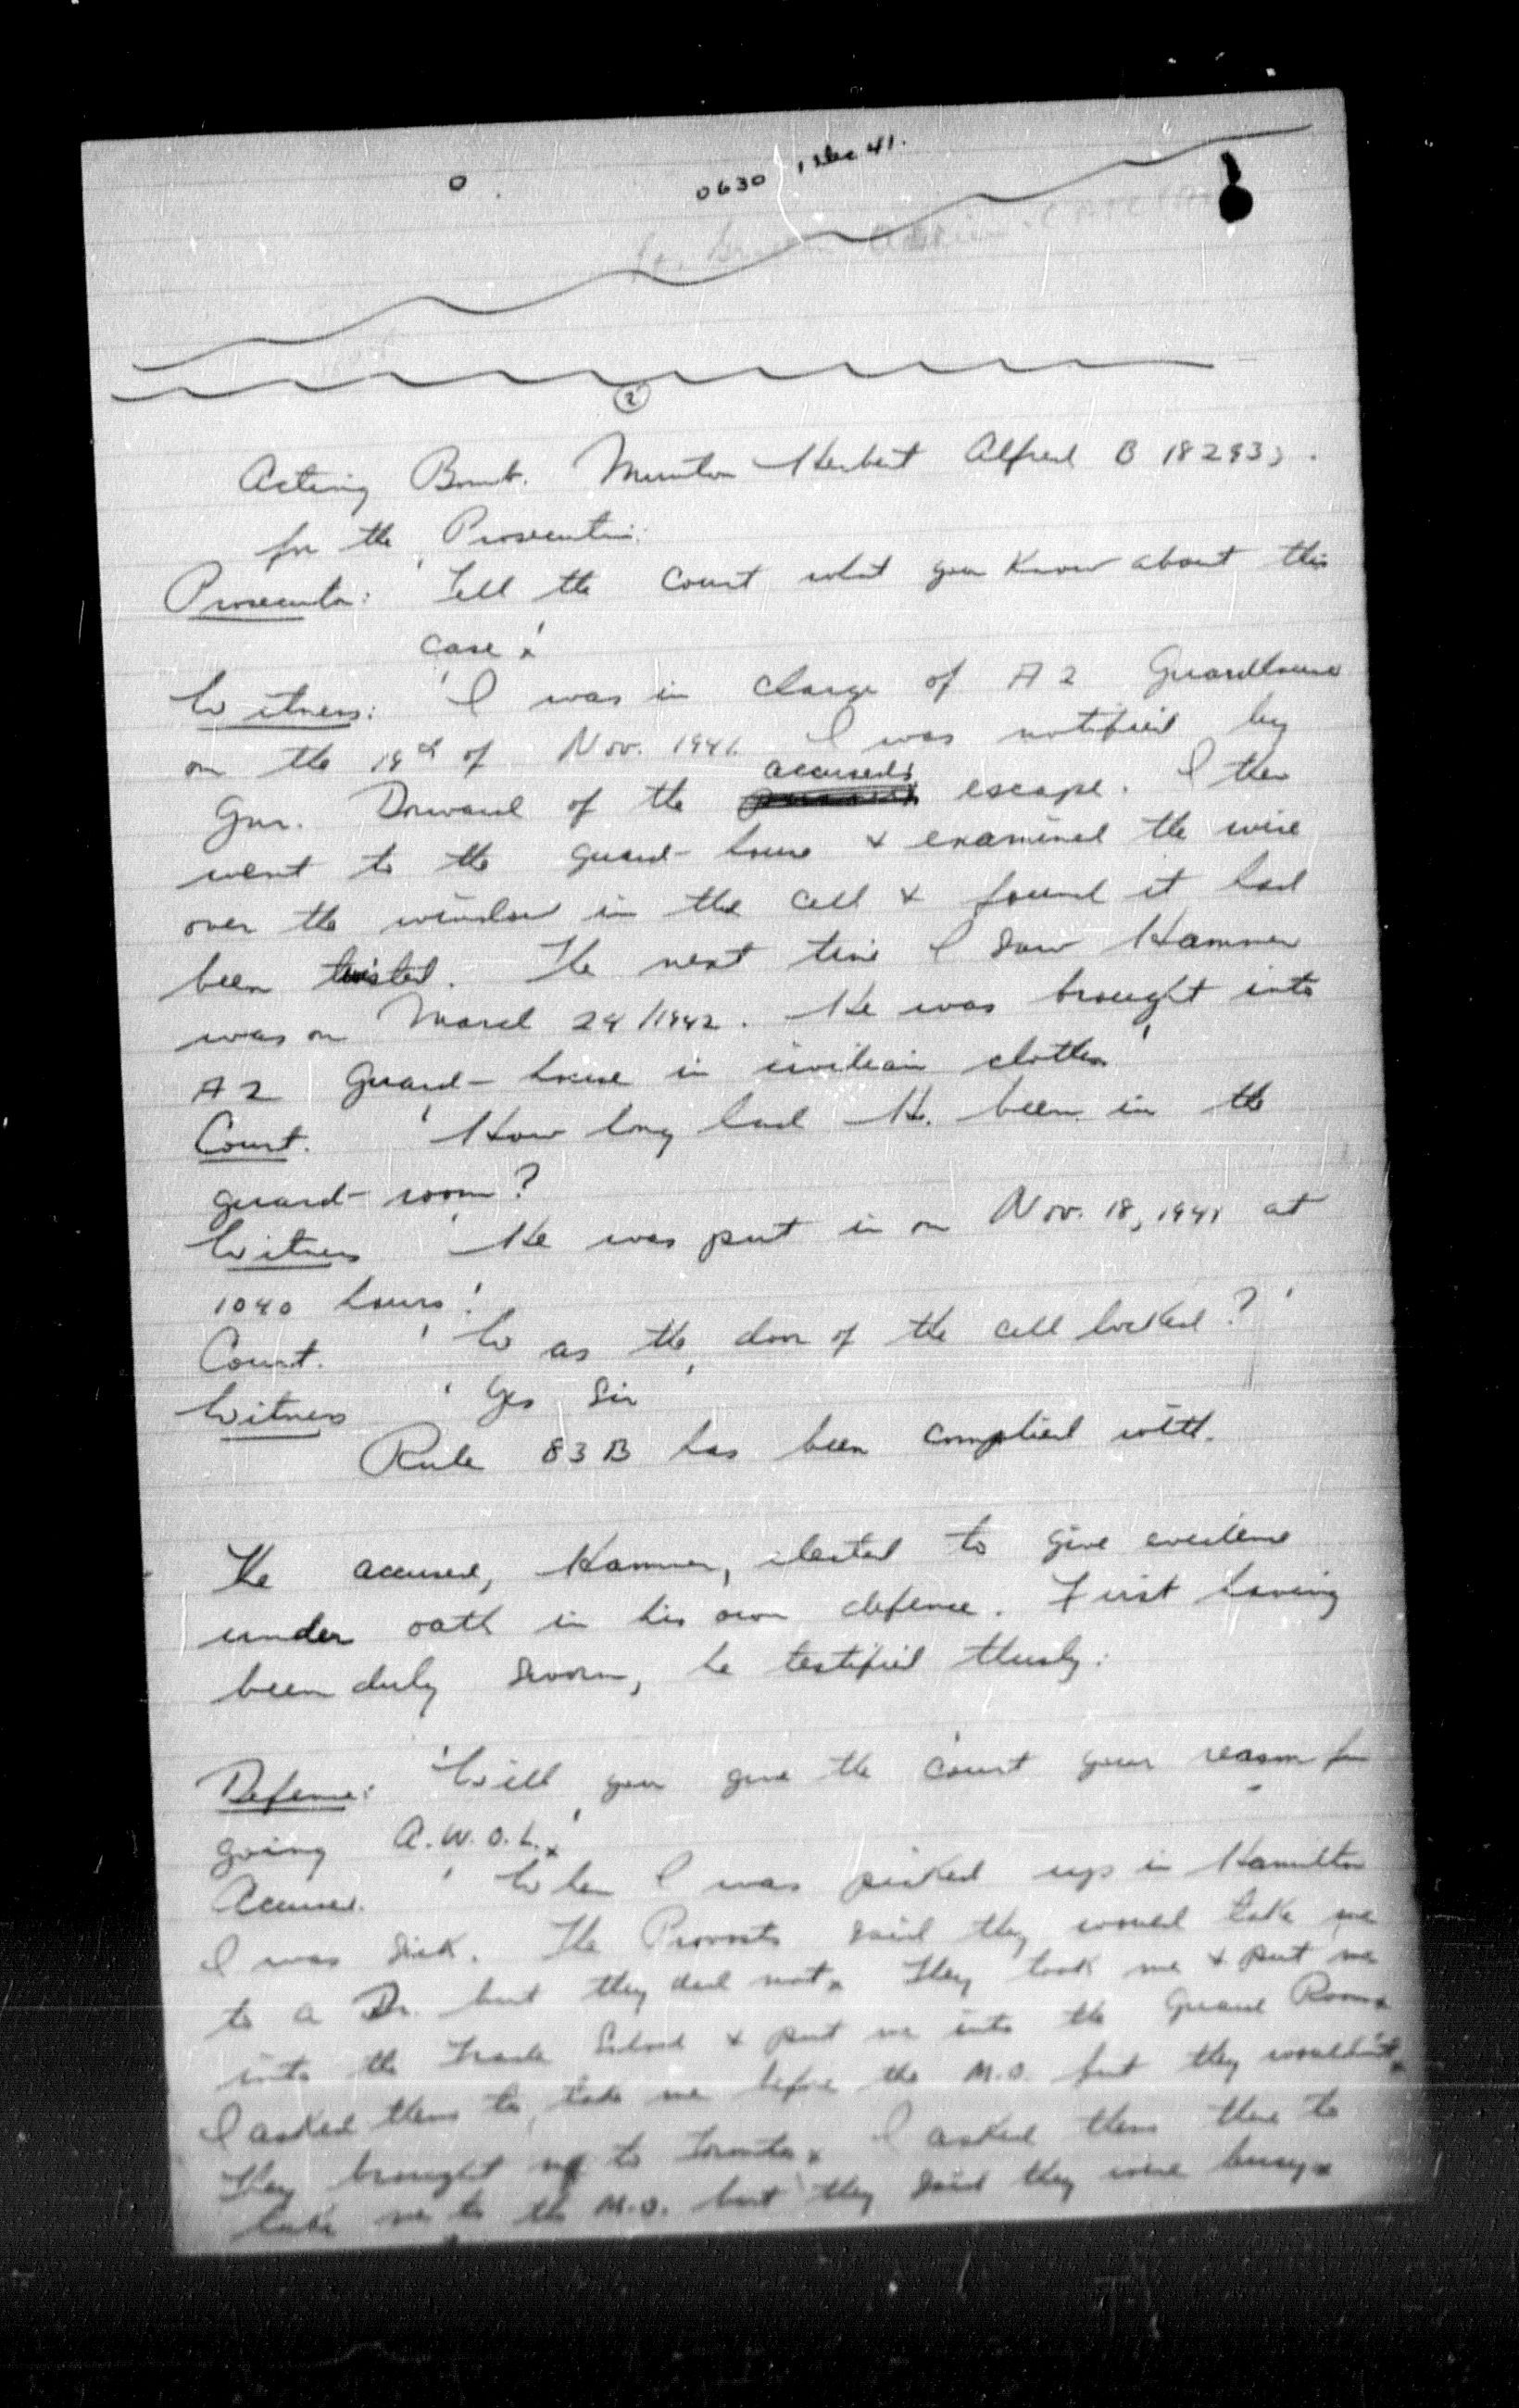 0630 1 Dec 41.
2
Acting Bomb. Munton Herbert Alfred B 18293
for the Prosecution:
Prosecutor: 'Tell the court what you know about this
case.'
Witness: 'I was in charge of A2 Guardhouse
on the 19th of Nov. 1941. I was notified by
Gnr. Dorward of the accused's escape. I then
went to the guard-house & examined the wire
over the window in the cell & found it had
been twisted. The next time I saw Hammer
was on March 24/1942. He was brought into
A2 Guard-house in civilian clothes'
Court. 'How long had H. been in the
guard-room?
Witness 'He was put in on Nov. 18, 1941 at
1040 hours'.
Court. 'Was the door of the cell locked?'
Witness 'Yes Sir'
Rule 83B has been complied with.
The accused, Hammer, elected to give evidence
under oath in his own defence. First having
been duly sworn, he testified thusly:
Defence: 'Will you give the court your reason for
going A.W.O.L.'
Accused. 'When I was picked up in Hamilton
I was sick. The Provosts said they would take me
to a Dr. but they did not. They took me & put me
into the Trade School & put me into the Guard Room.
I asked them to take me before the M.O. but they wouldn't.
They brought me to Toronto. I asked them there to
take me to the M.O. but they said they were busy.